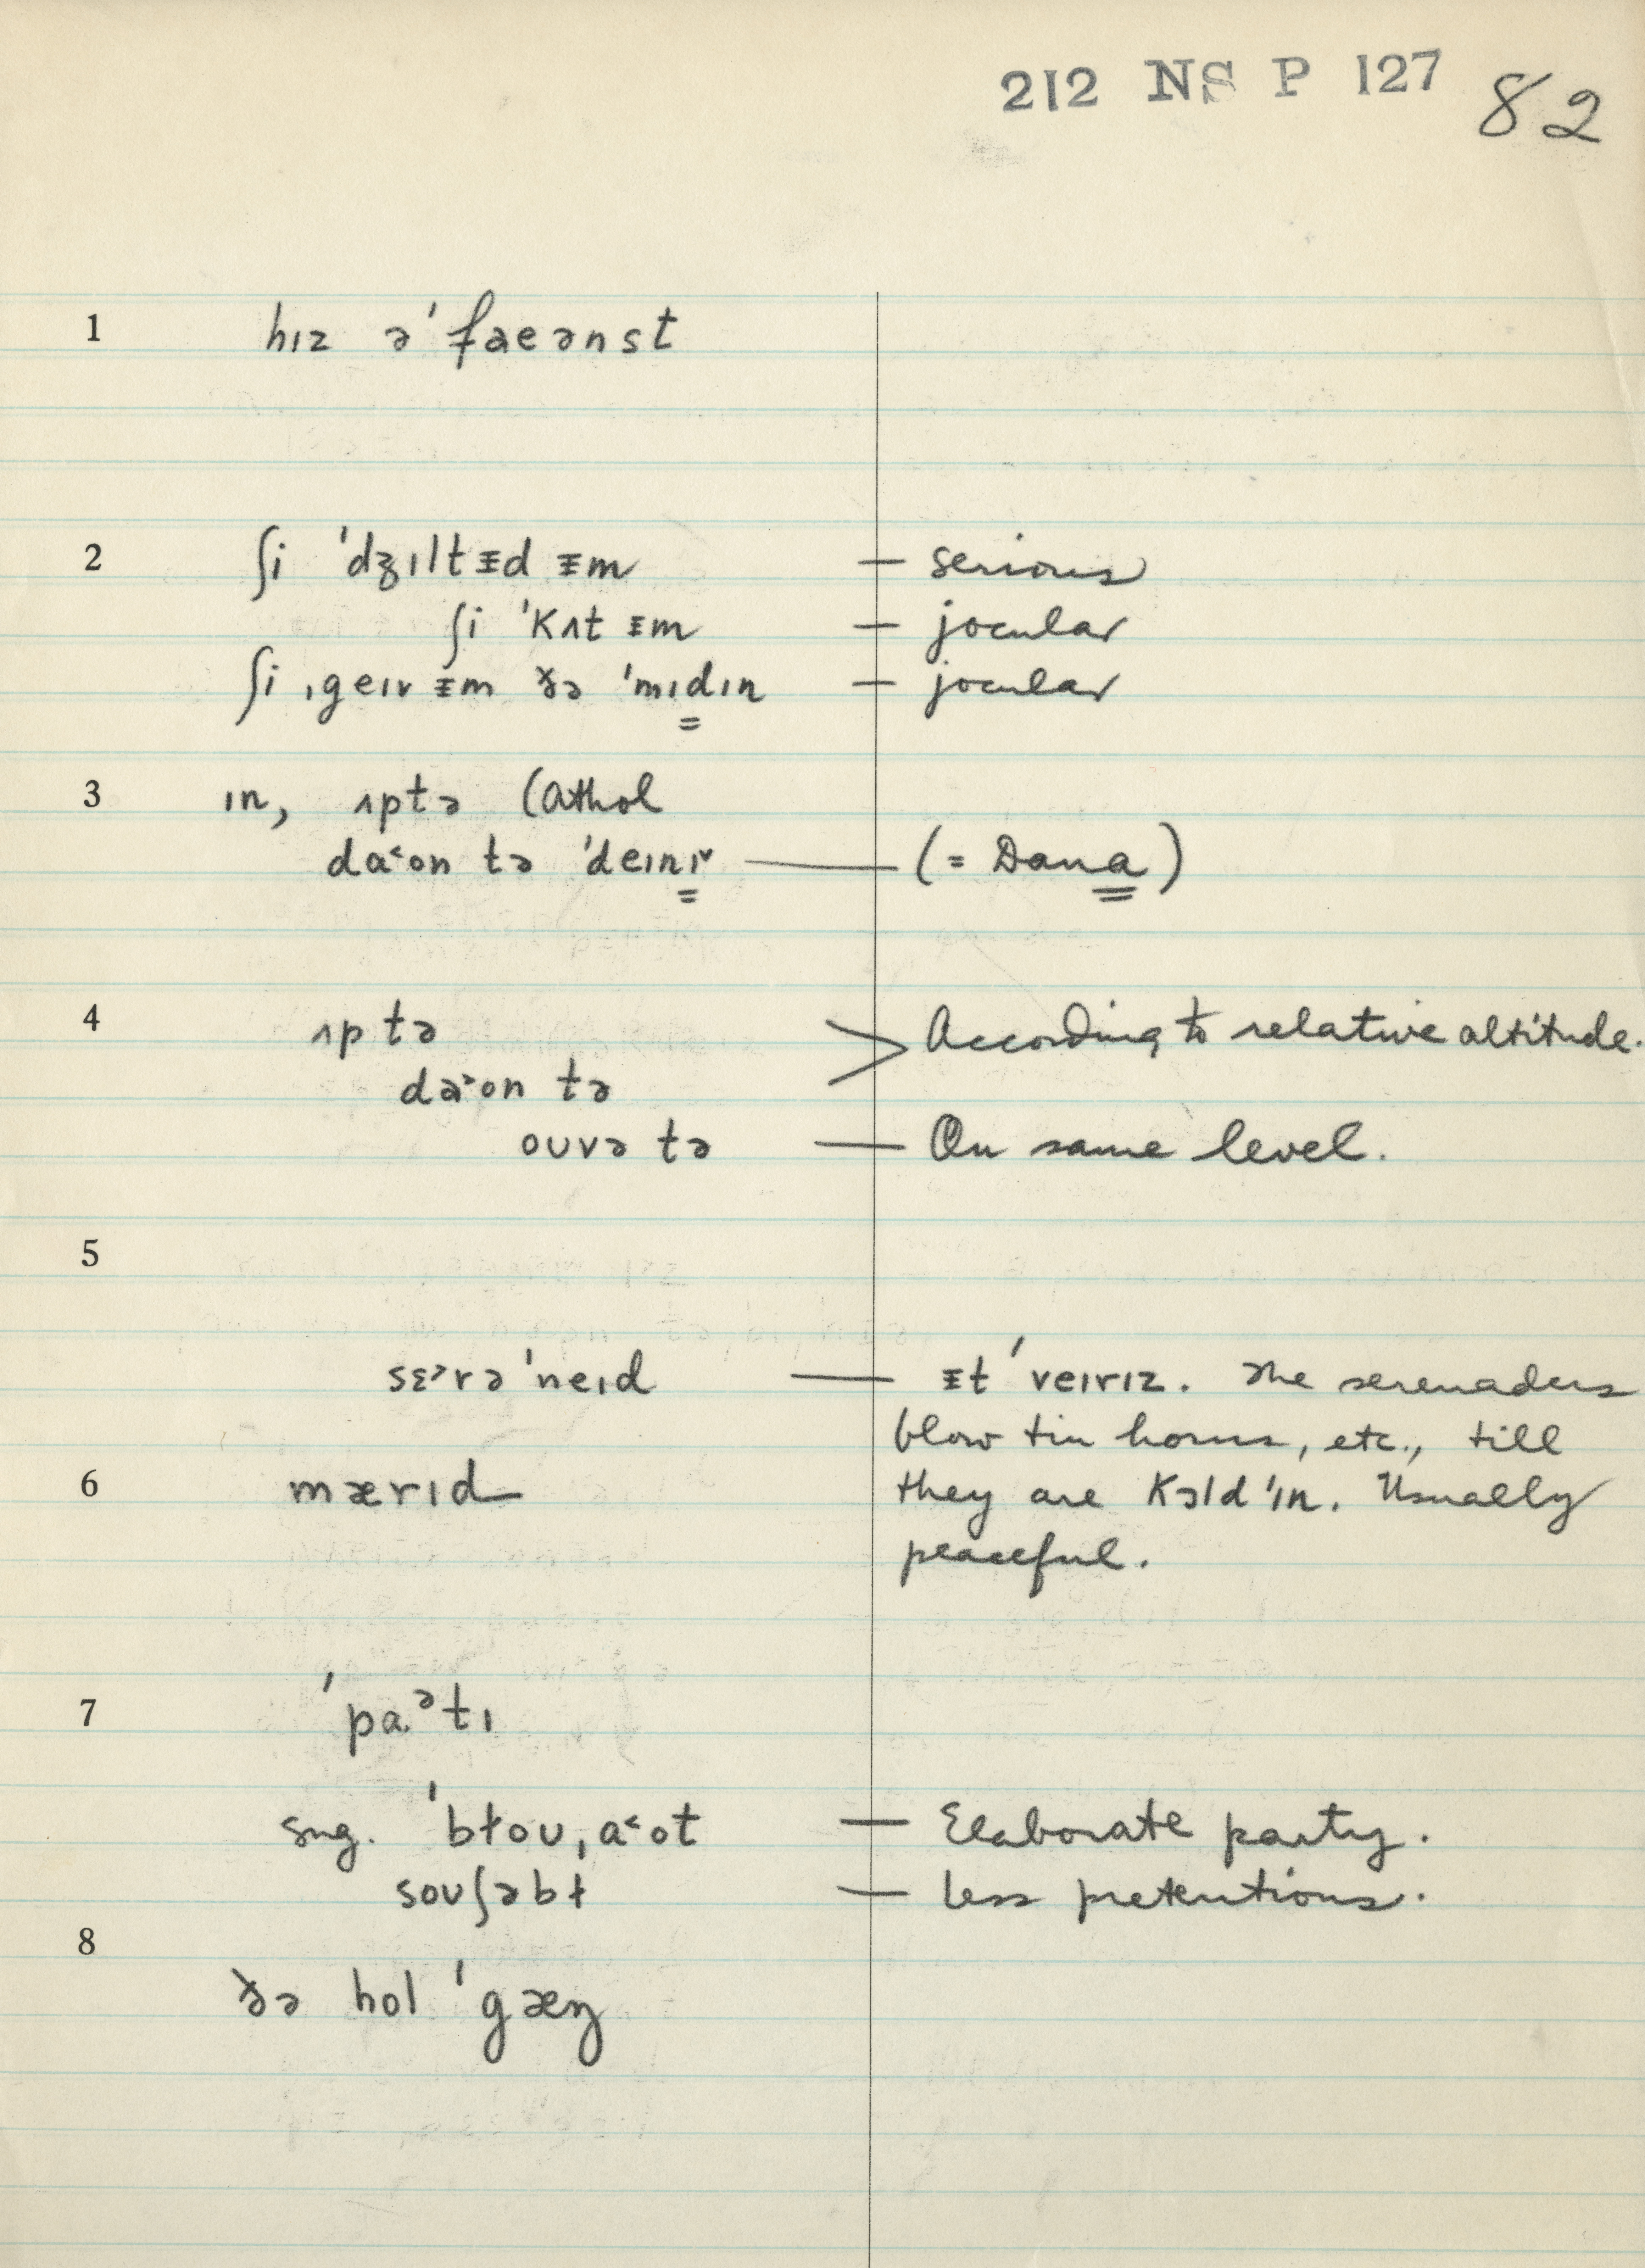 212 NS P 127 82
1 hɪz əˈfaeənst
2 ʃi ˈdʒɪltᵻd ᵻm — serious
ʃi ˈkʌt ᵻm — jocular
ʃi ˌgeɪv ᵻm ðə ˈmɪdɪn — jocular
3 ɪn, ʌptə (Athol
da˂on tə ˈdeɪnɪ˅ — (= Dana)
4 ʌp tə > According to relative altitude.
da˃on tə
ouvə tə — On same level.
5
sɛ˃rəˈneɪd — ᵻtˈveɪrɪz. The serenaders
blow tin horns, etc., till
6 mærɪd they are kɔldˈɪn. Usually
peaceful.
7 ˈpa.ᵊtɪ
sng. ˈbɫouˌa˂ot — Elaborate party.
souʃəbɫ — less pretentious.
8
ðə hol ˈgæŋ